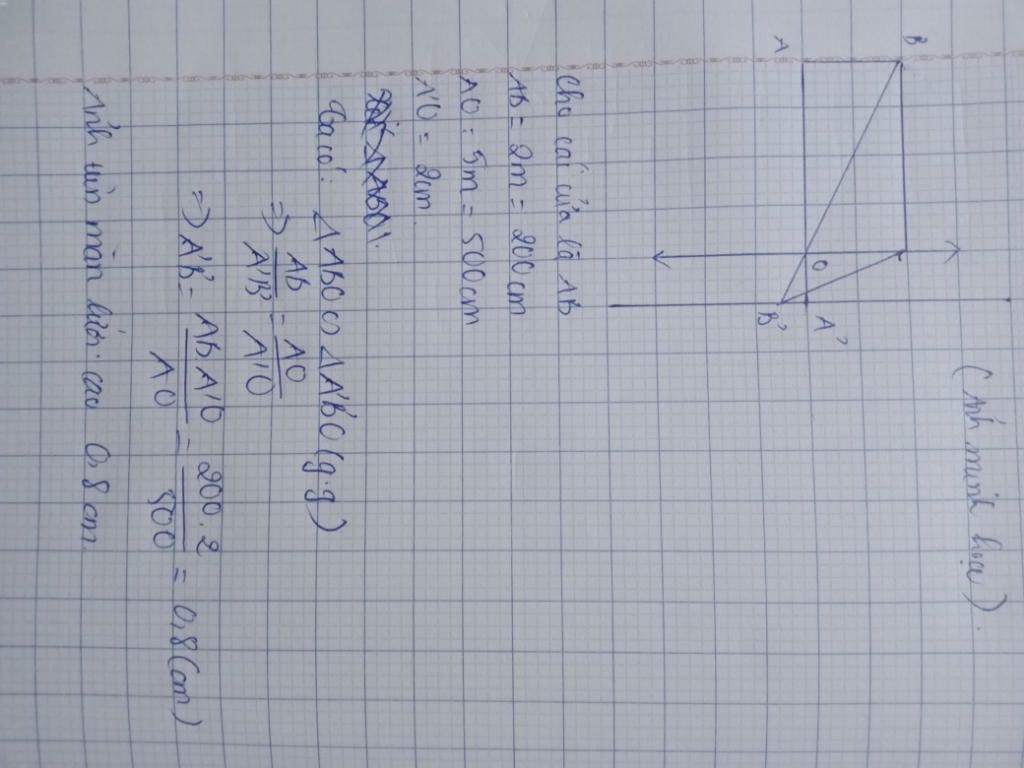 (Ảnh minh họa).
B
A
O
A'
B'
Cho cái cửa là AB
AB = 2m = 200cm
AO = 5m = 500cm
A'O = 2cm.
Ta có: Δ ABO ∽ Δ A'B'O (g.g)
=> AB/A'B' = AO/A'O
=> A'B' = AB.A'O/AO = 200.2/500 = 0,8 (cm)
Ảnh trên màn lưới cao 0,8 cm.